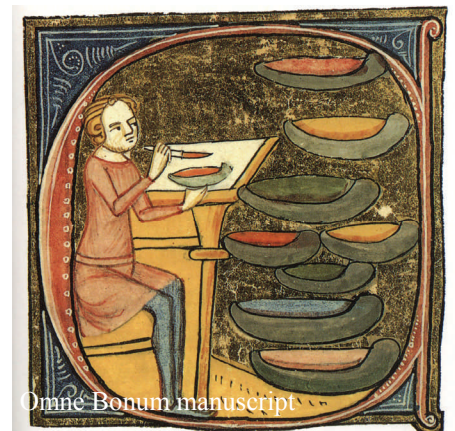 Omne Bonum manuscript